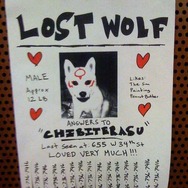 LOST WOLF
MALE
Approx
12 LB
Likes:
The Sun
Painting
Peanut Butter
ANSWERS TO
"CHIBITERASU"
Last Seen at 655 W 34th St
LOVED VERY MUCH!!!